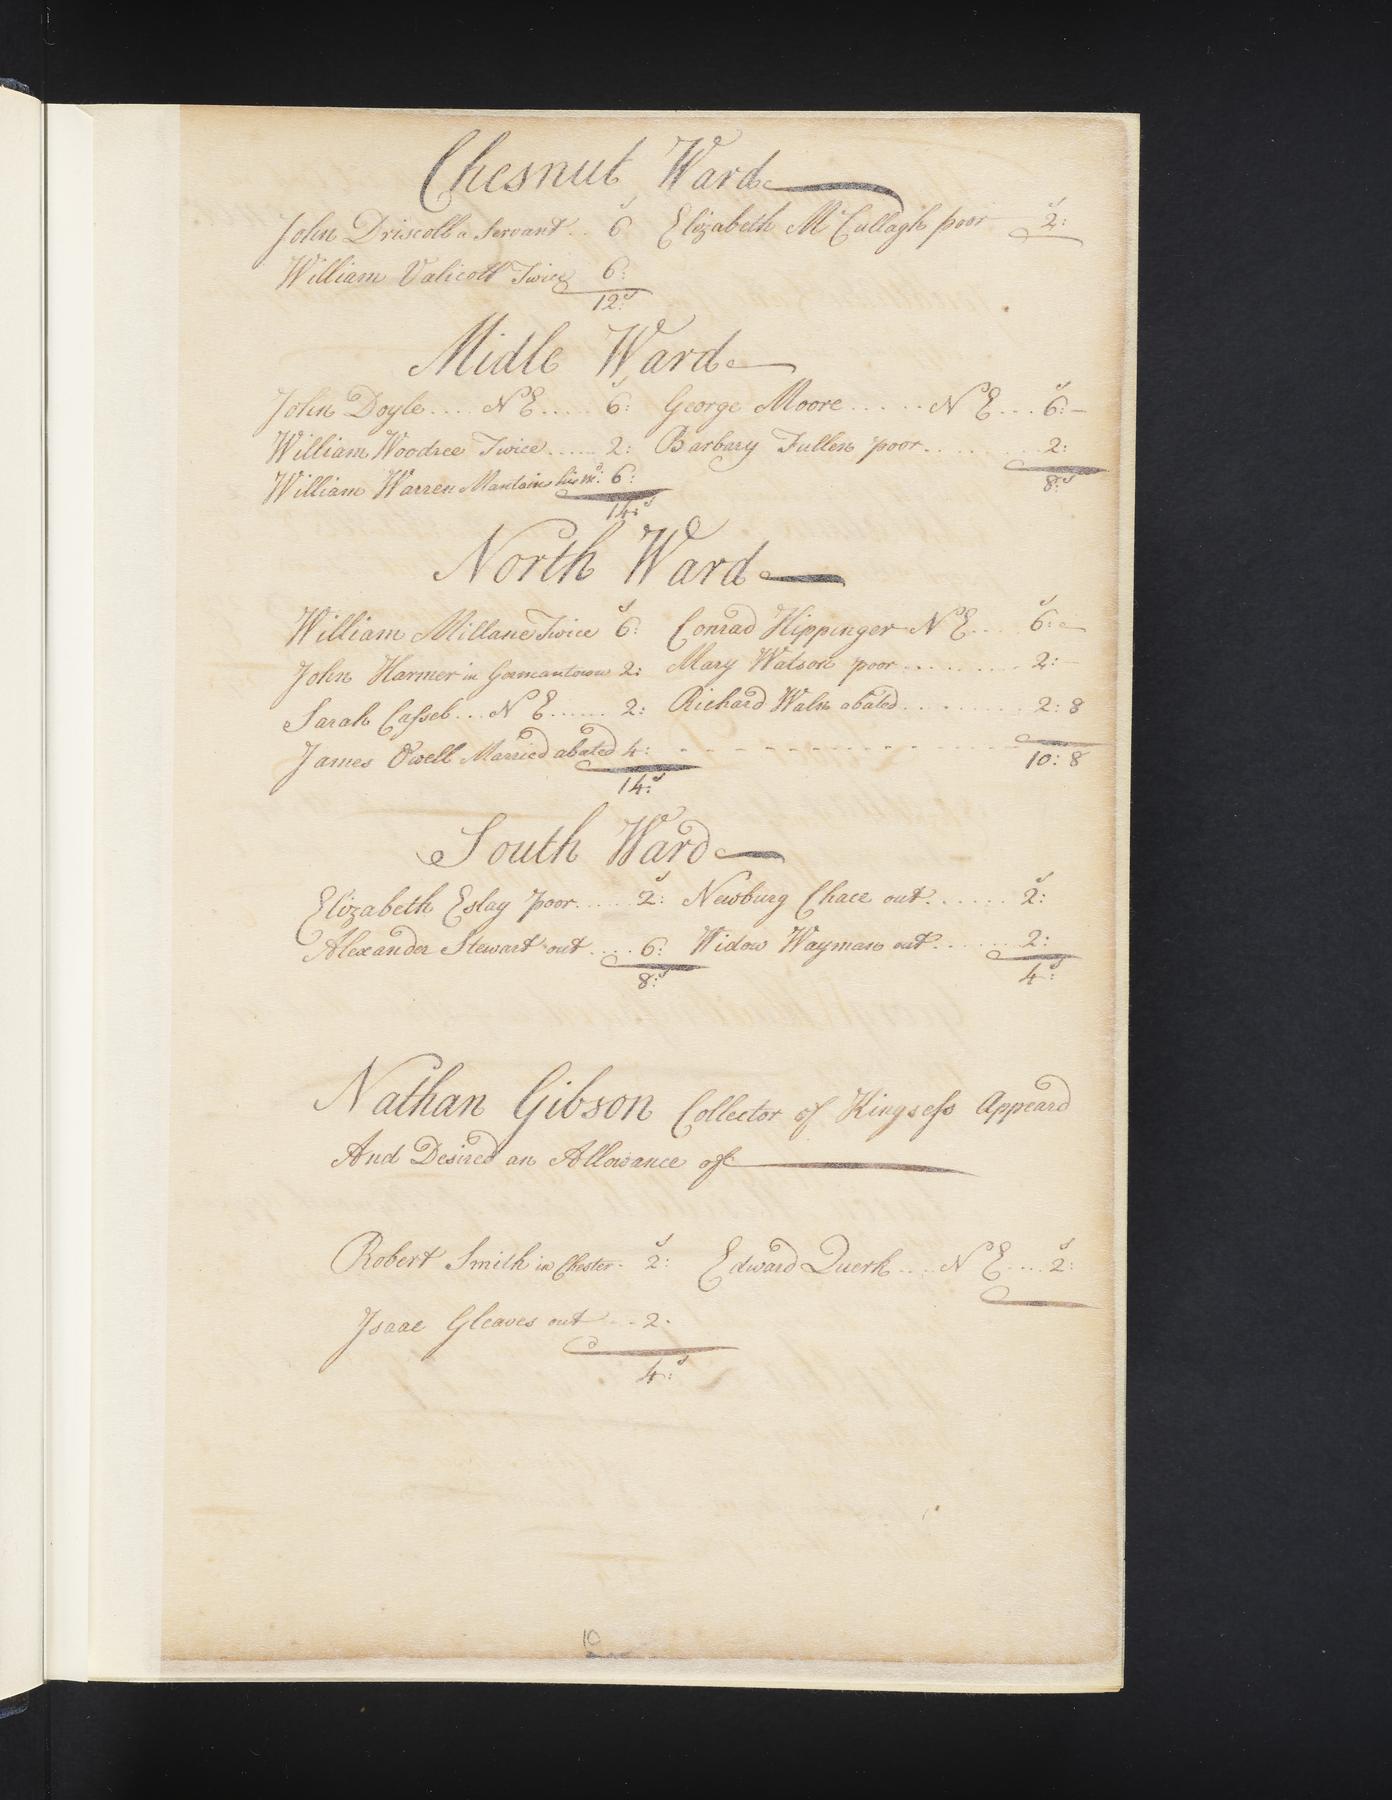 Chesnut Ward
John Driscoll a Servant .. 6s Elizabeth McCullagh poor 2s:
William Valicott Twice 6:
12:s
Midle Ward
John Doyle .... N E ..... 6s: George Moore ...... N E ... 6s:
William Woodree Twice ...... 2: Barbary Fullen poor ......... 2:
William Warren Mantains his m: 6:
8:s
14:s
North Ward
William Millane Twice 6s: Conrad Hippinger N E .... 6s:
John Harmer in Germantown 2: Mary Watson poor .......... 2:
Sarah Cassel ... N E ...... 2: Richard Waln abated .......... 2:8
James Owell Married abated 4:
10:8
14:s
South Ward
Elizabeth Eslay poor ..... 2s: Newburg Chace out ....... 2s:
Alexander Stewart out .... 6: Widow Wayman out ....... 2:
8:s 4:s
Nathan Gibson Collector of Kingsess Appeard
And Desired an Allowance off
Robert Smith in Chester - 2s: Edward Querk .... N E .... 2s:
Isaac Gleaves out -- 2.
4:s
10